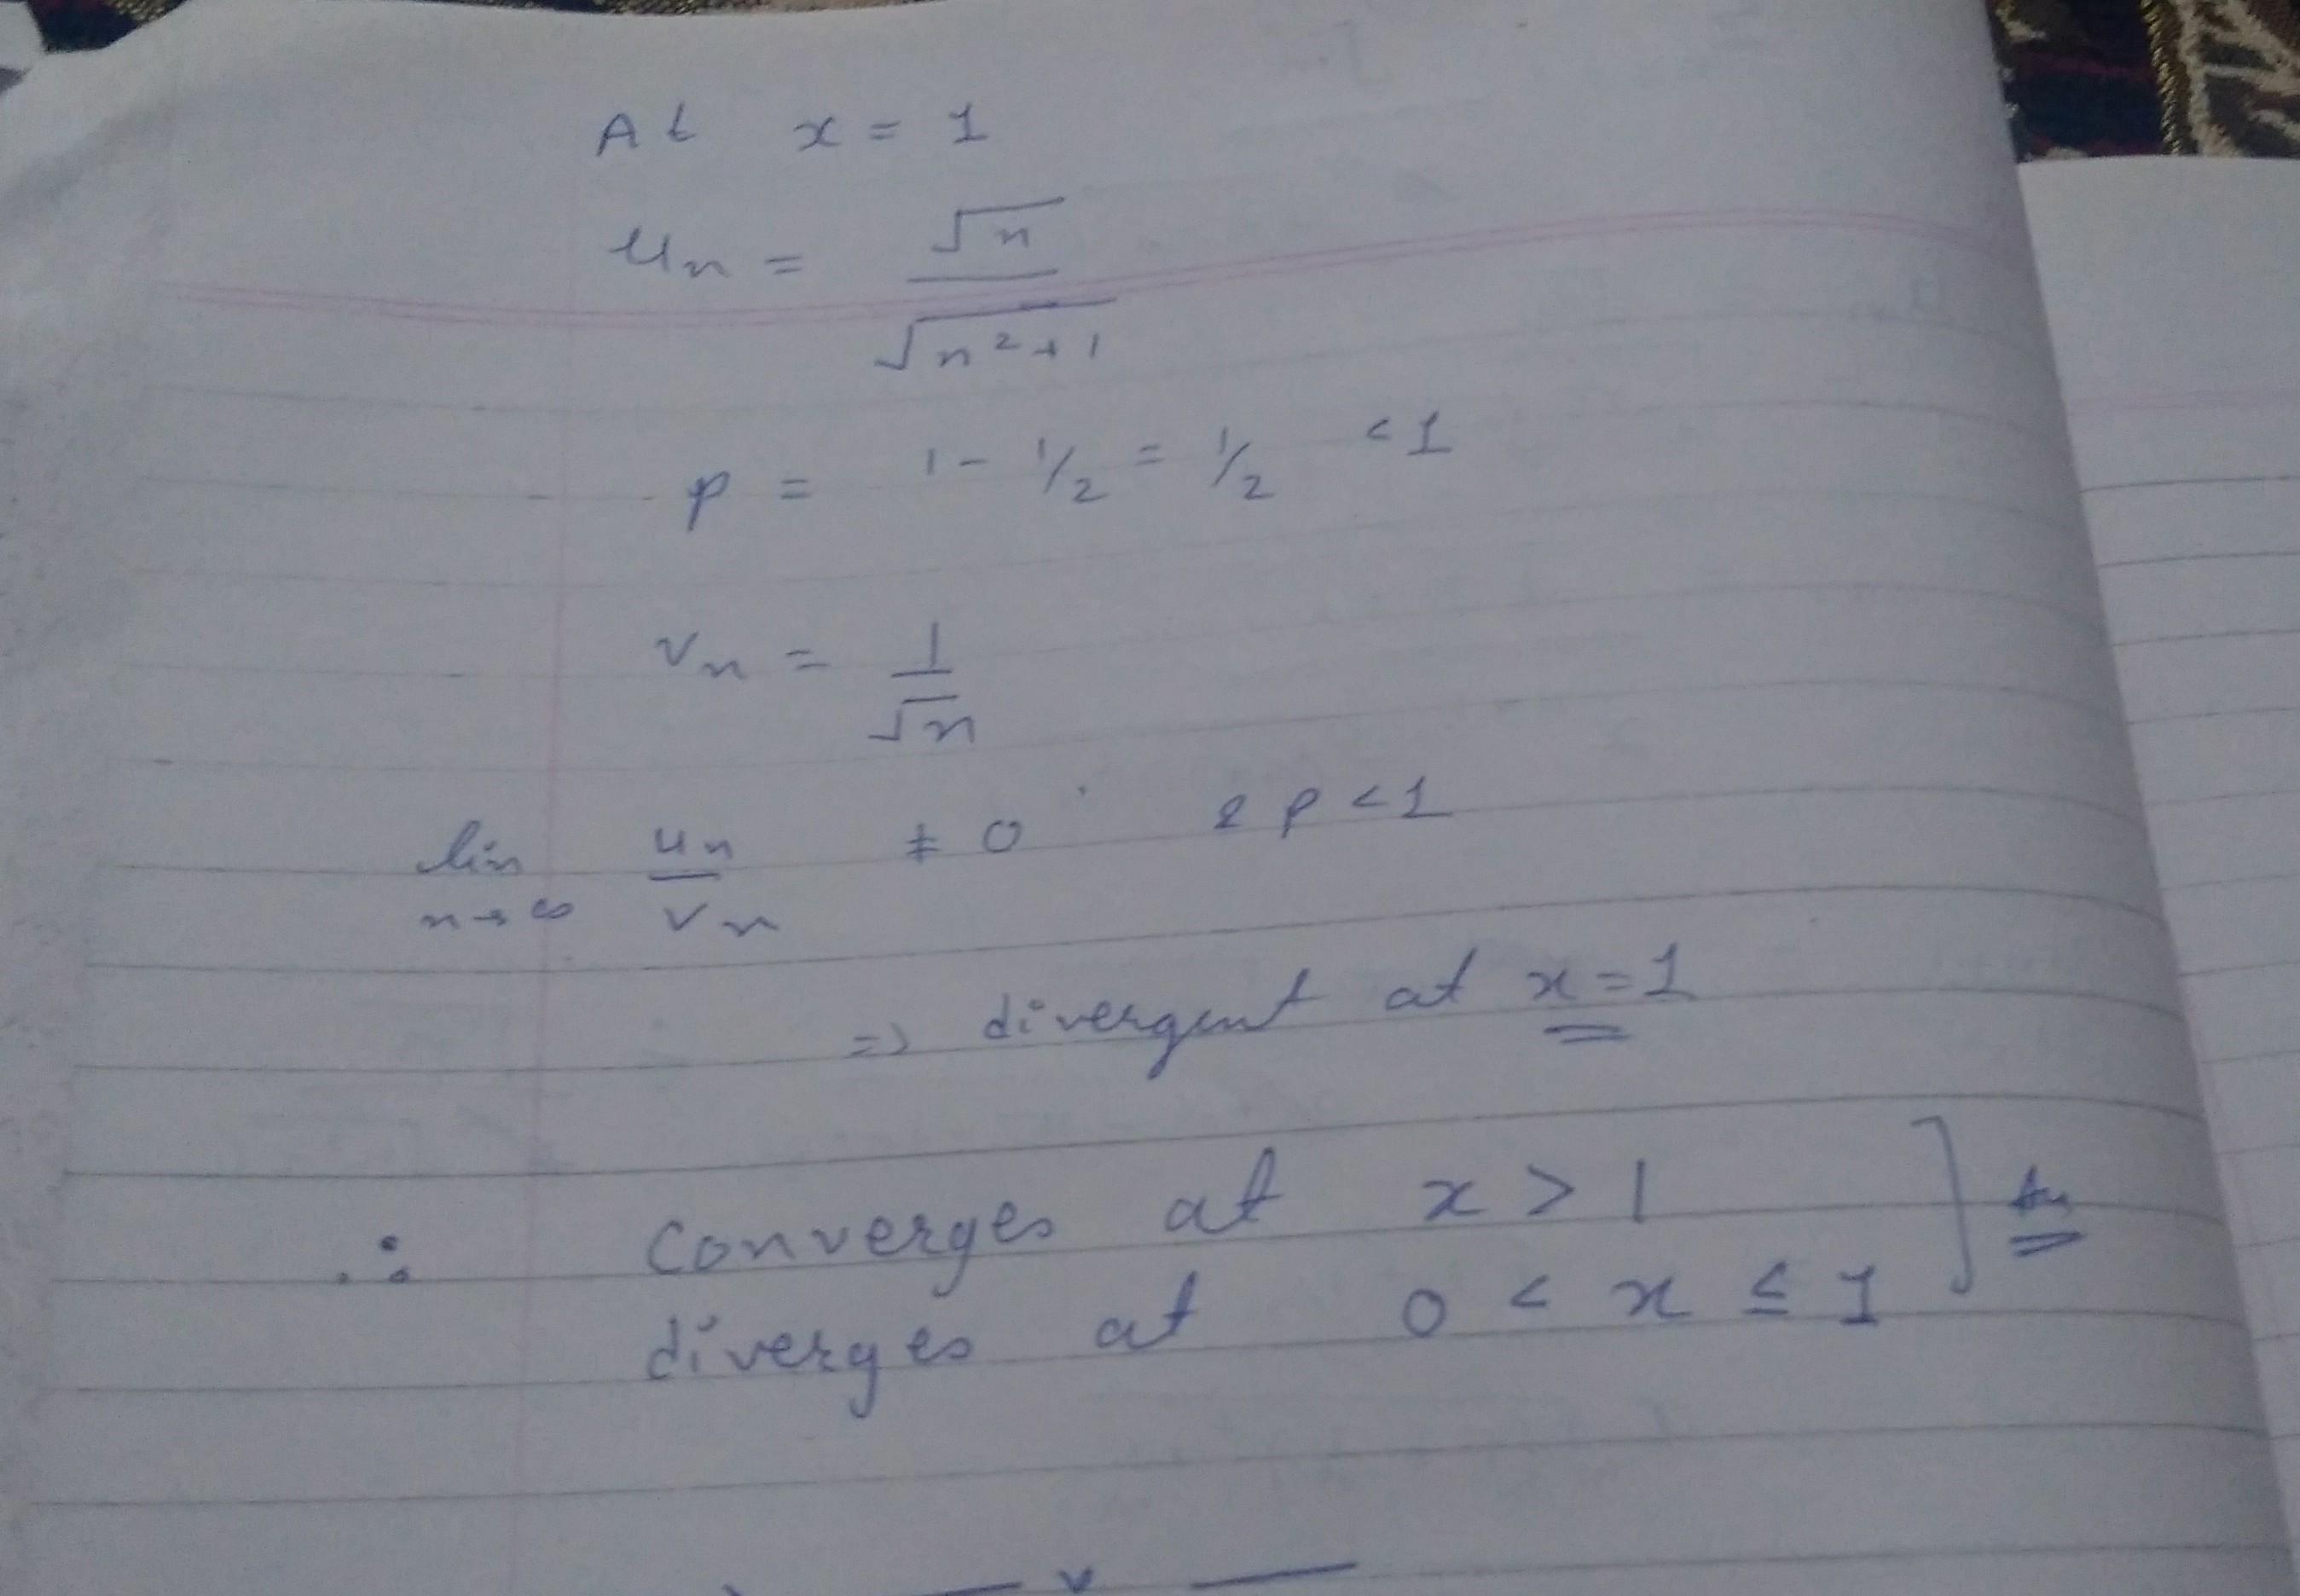 At x = 1
un = √n / √n²+1
p = 1 - 1/2 = 1/2 < 1
vn = 1 / √n
lim n→∞ un / vn ≠ 0 & p < 1
=> divergent at x = 1
∴ converges at x > 1
diverges at 0 < x ≤ 1